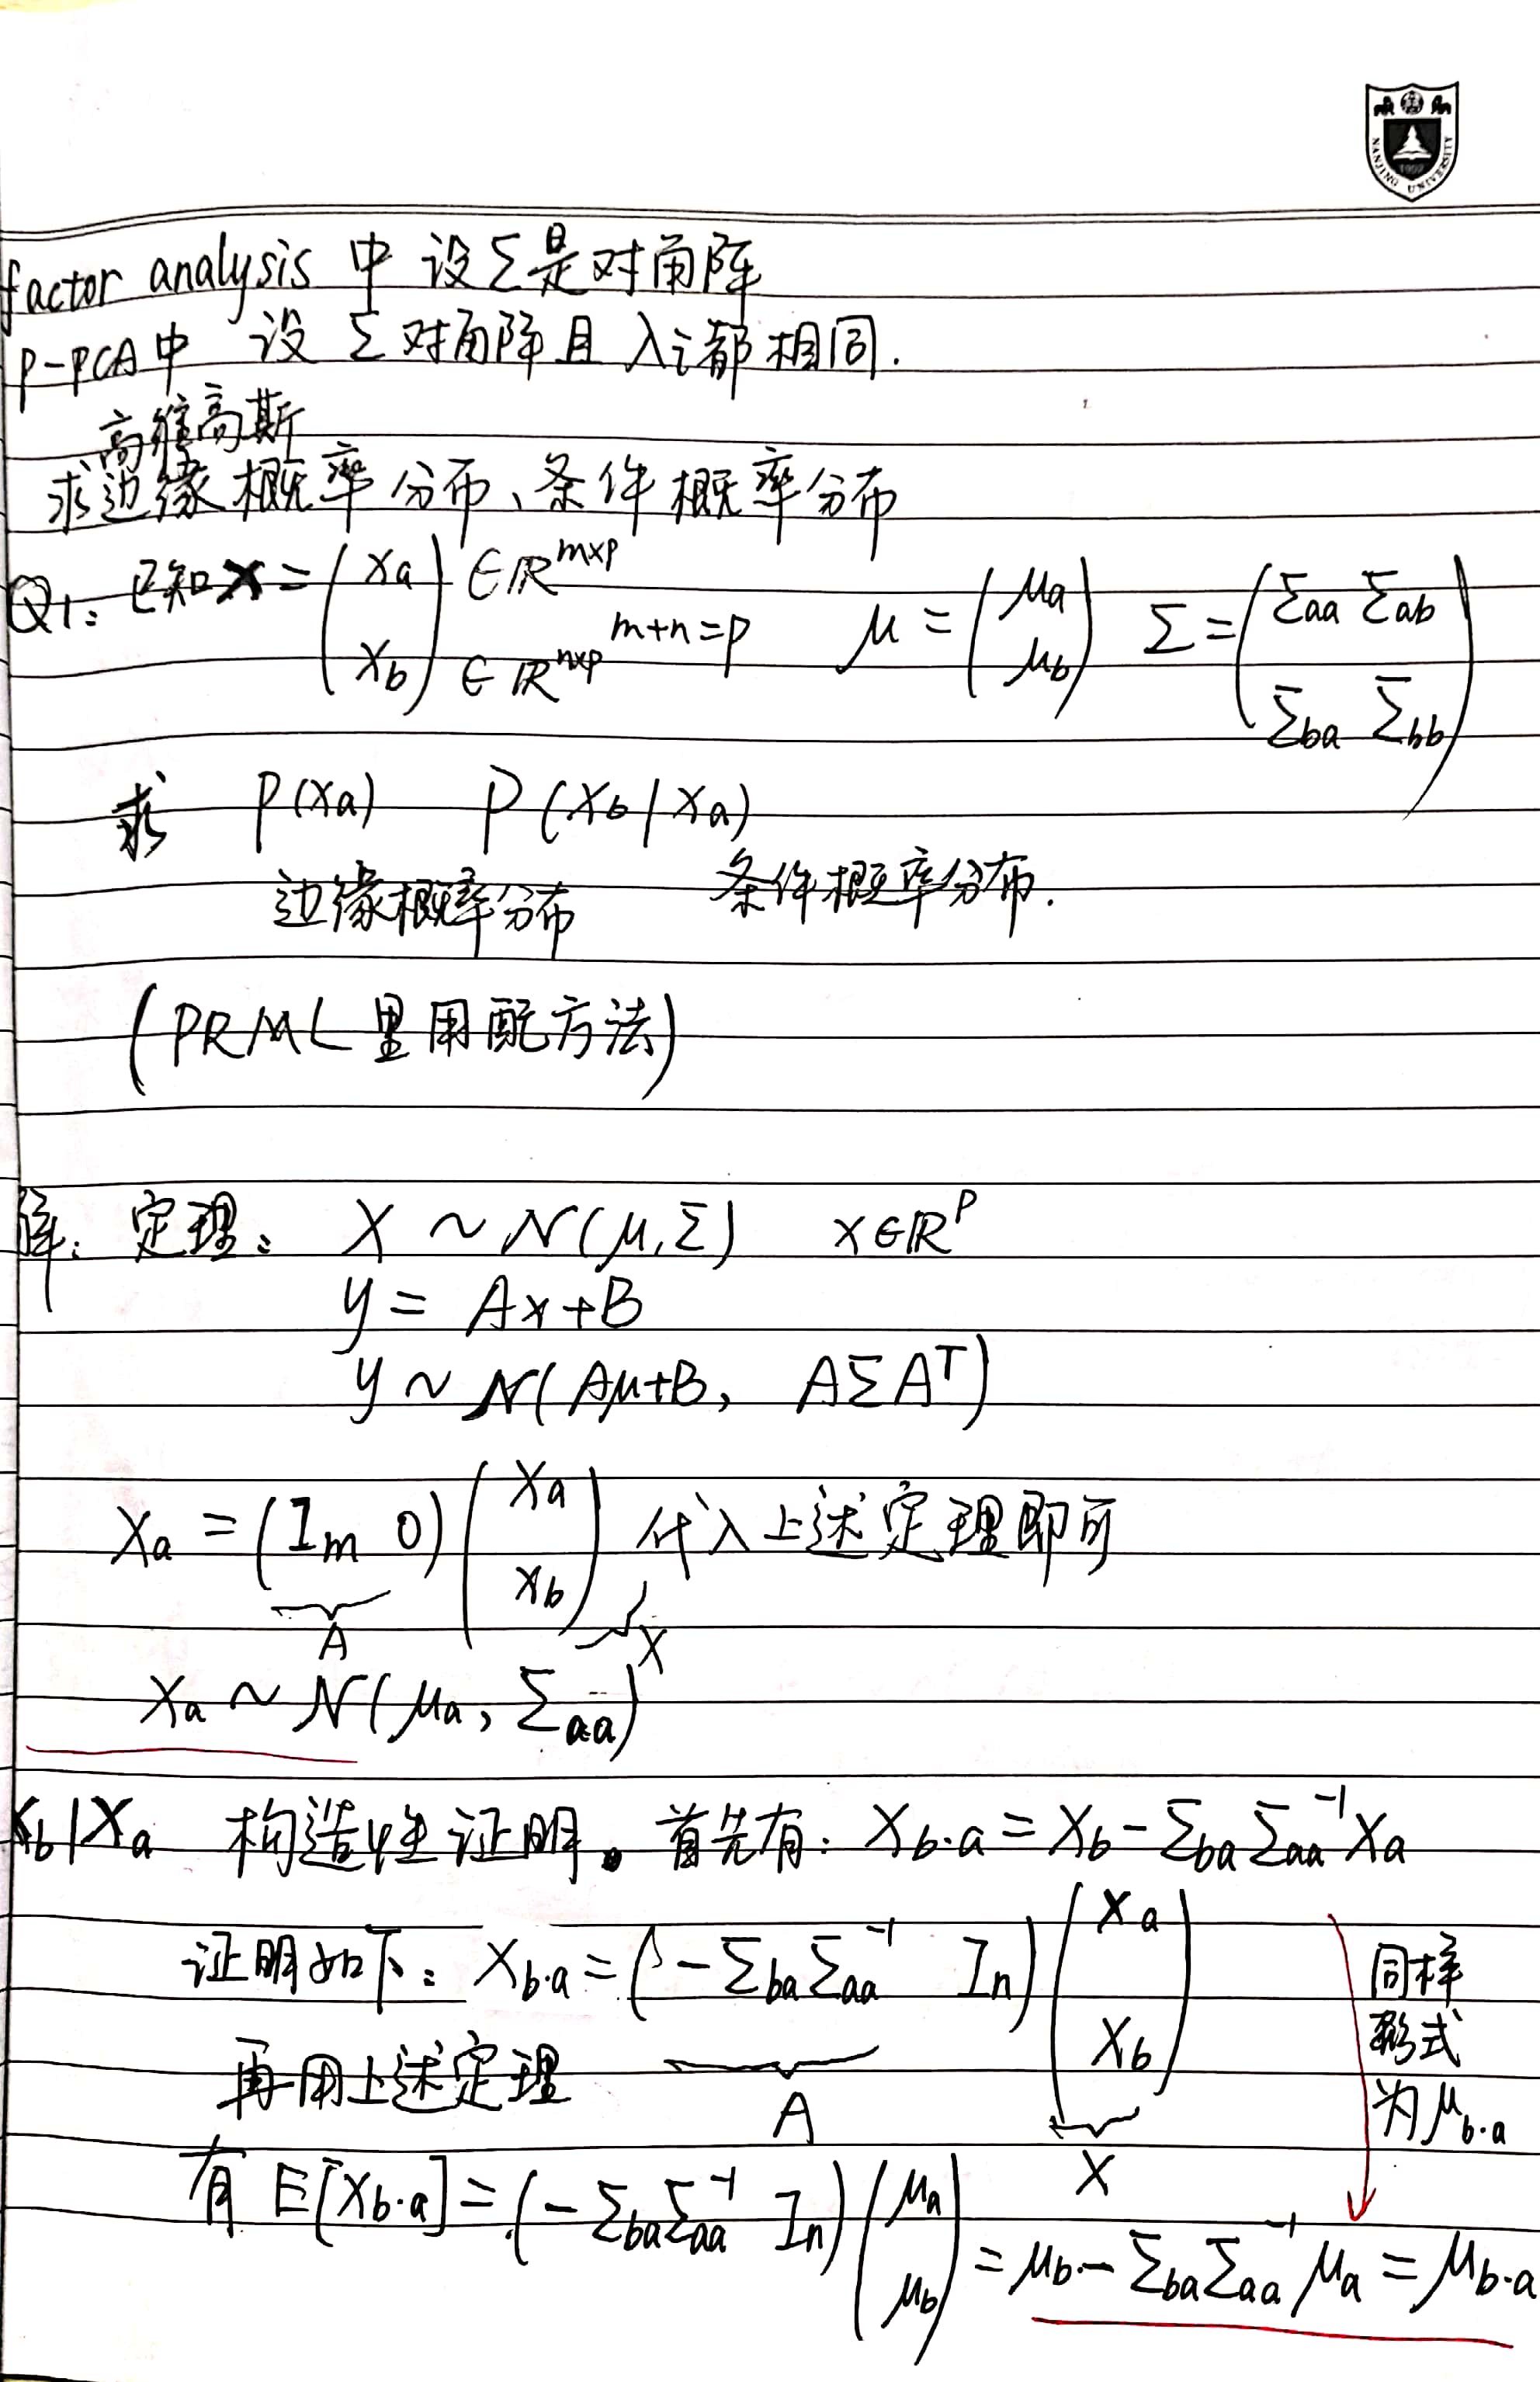 NANJING UNIVERSITY
1902
factor analysis 中 设Σ是对角阵
P-PCA中 设 Σ对角阵且 λi都相同.
高维高斯
求边缘概率分布、条件概率分布
Q1: 已知 x = (xa ∈ℝ^{m×p} xb ∈ℝ^{n×p}) m+n=p μ = (μa μb) Σ = (Σaa Σab Σba Σbb)
求 P(xa) P(xb|xa)
边缘概率分布 条件概率分布.
(PRML 里用配方法)
解: 定理: X ~ N(μ,Σ) x∈ℝ^p
y = Ax+B
y ~ N(Aμ+B, AΣA^T)
xa = (Im 0) (xa xb) 代入上述定理即可
A X
xa ~ N(μa, Σaa)
xb|xa 构造性证明。首先有: xb·a = xb - Σba Σaa^{-1} xa
证明如下: xb·a = (-Σba Σaa^{-1} In) (xa xb)
同样
形式
为μb·a
再用上述定理 A X
有 E[xb·a] = (-Σba Σaa^{-1} In) (μa μb) = μb - Σba Σaa^{-1} μa = μb·a